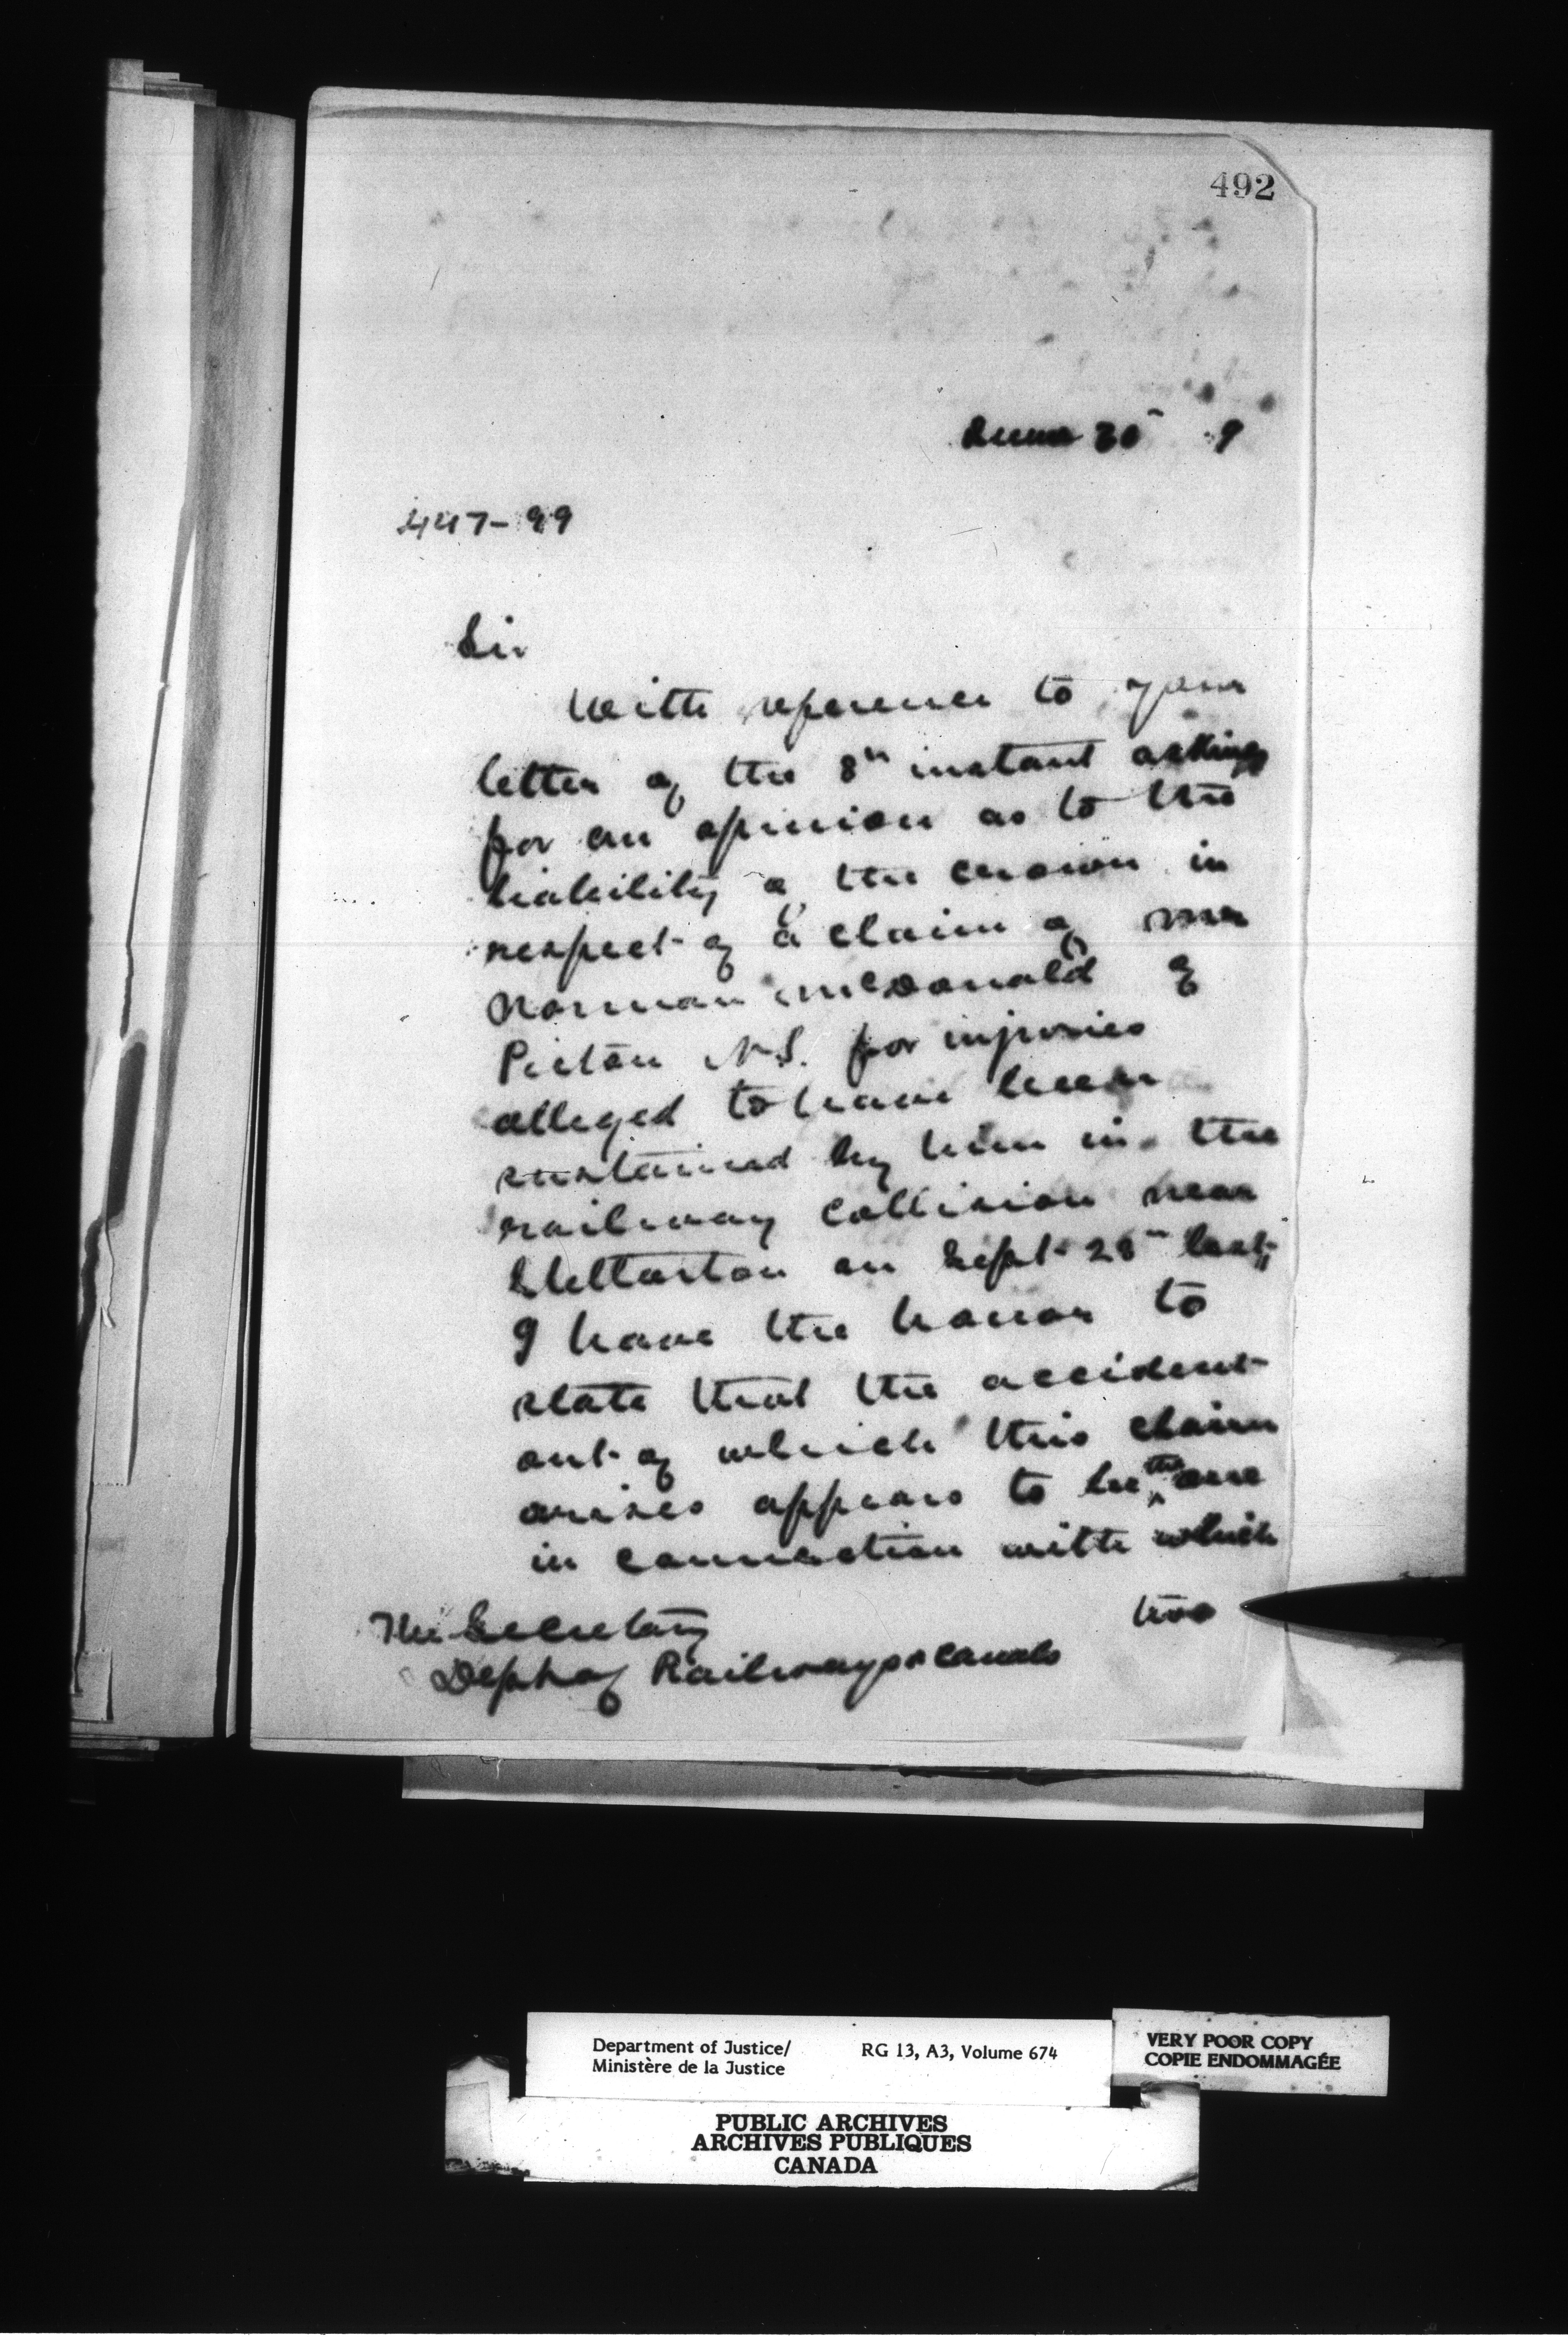 492
June 30 9
447-99
Sir
With reference to your
letter of the 8th instant asking
for an opinion as to the
liability of the crown in
respect of a claim of Mr
Norman McDonald of
Pictou N.S. for injuries
alleged to have been
sustained by him in the
railway collision near
Stellarton on Sept 28th last,
I have the honor to
state that the accident
out of which this claim
arises appears to be the one
in connection with which
two
The Secretary
Dept of Railways & Canals
Department of Justice/
Ministère de la Justice
RG 13, A3, Volume 674
VERY POOR COPY
COPIE ENDOMMAGÉE
PUBLIC ARCHIVES
ARCHIVES PUBLIQUES
CANADA